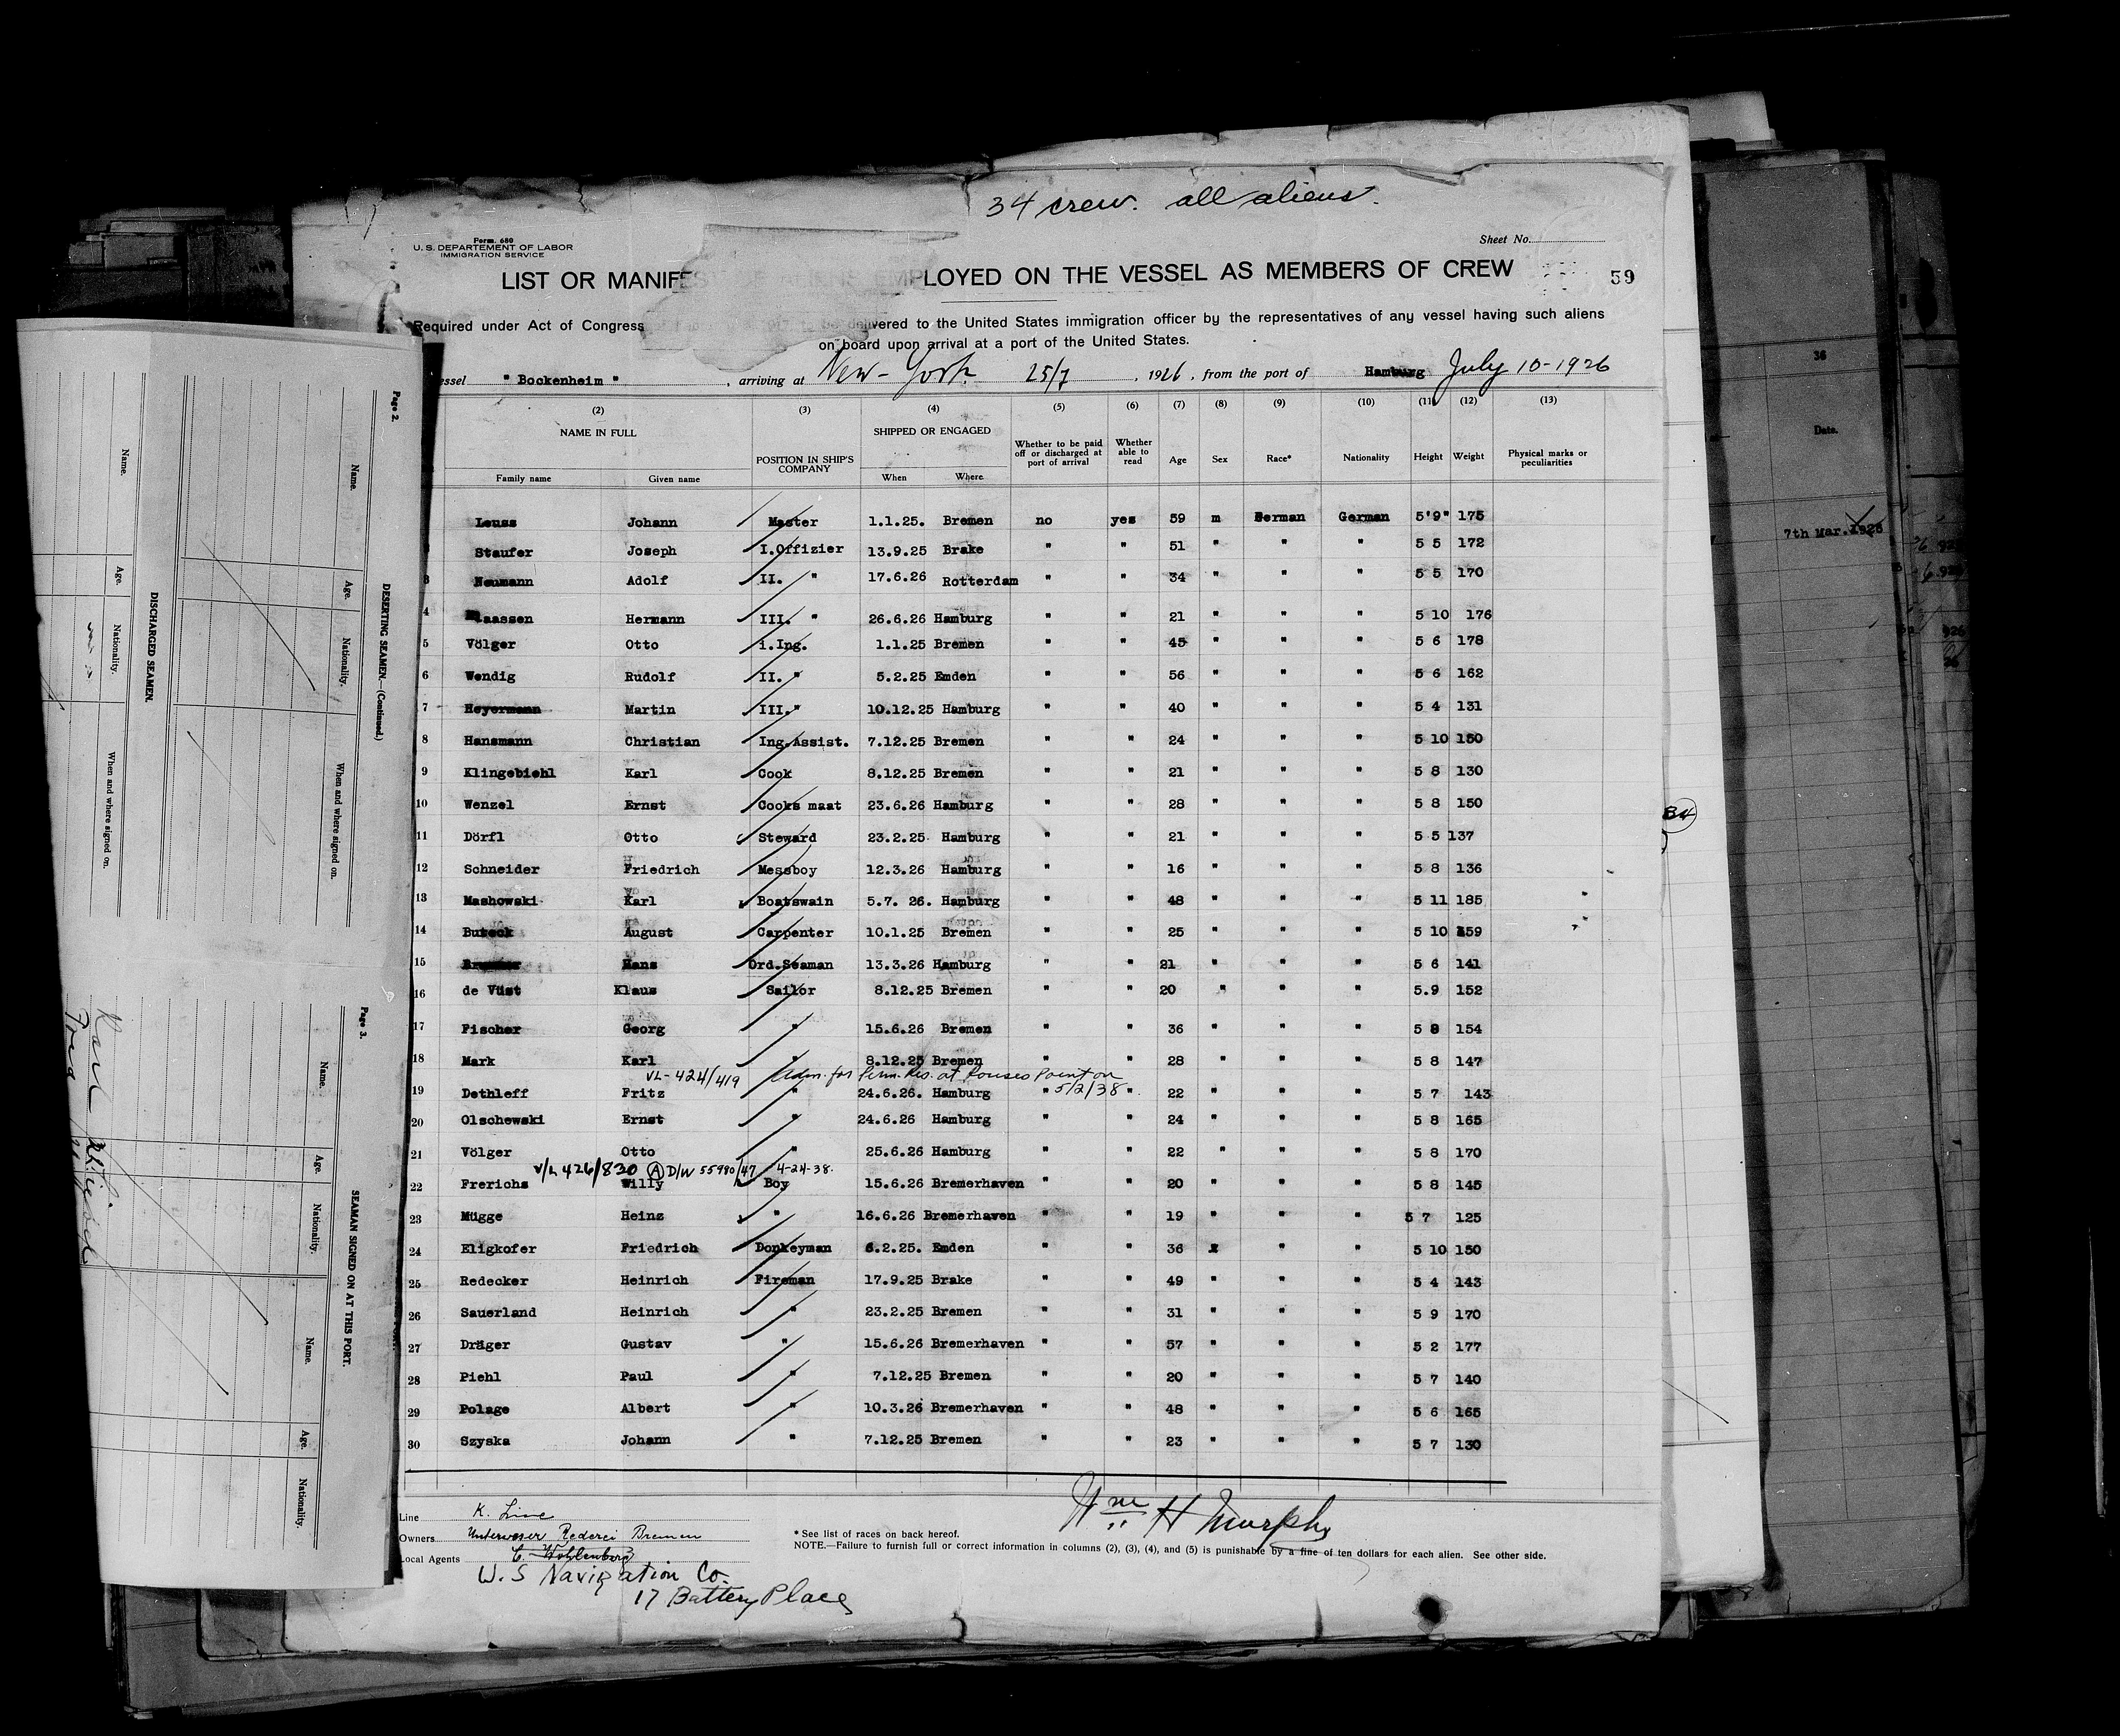 34 crew. all aliens.
Form. 680
U. S. DEPARTEMENT OF LABOR
IMMIGRATION SERVICE
Sheet No.
LIST OR MANIFEST OF ALIENS EMPLOYED ON THE VESSEL AS MEMBERS OF CREW
59
Required under Act of Congress delivered to the United States immigration officer by the representatives of any vessel having such aliens
on board upon arrival at a port of the United States.
essel " Bockenheim " , arriving at New-York 25/7 , 1926, from the port of Hamburg July 10-1926
(2) (3) (4) (5) (6) (7) (8) (9) (10) (11) (12) (13)
NAME IN FULL POSITION IN SHIP'S COMPANY SHIPPED OR ENGAGED Whether to be paid off or discharged at port of arrival Whether able to read Age Sex Race* Nationality Height Weight Physical marks or peculiarities
Family name Given name When Where
Leuss Johann Master 1.1.25. Bremen no yes 59 m German German 5'9" 175
Staufer Joseph I.Offizier 13.9.25 Brake " " 51 " " " 5 5 172
3 Neumann Adolf II. " 17.6.26 Rotterdam " " 34 " " " 5 5 170
4 aassen Hermann III. " 26.6.26 Hamburg " " 21 " " " 5 10 176
5 Völger Otto i.Ing. 1.1.25 Bremen " " 45 " " " 5 6 178
6 Wendig Rudolf II. " 5.2.25 Emden " " 56 " " " 5 6 162
7 Heyermann Martin III." 10.12.25 Hamburg " " 40 " " " 5 4 131
8 Hansmann Christian Ing.Assist. 7.12.25 Bremen " " 24 " " " 5 10 150
9 Klingebiehl Karl Cook 8.12.25 Bremen " " 21 " " " 5 8 130
10 Wenzel Ernst Cooks maat 23.6.26 Hamburg " " 28 " " " 5 8 150
11 Dörfl Otto Steward 23.2.25 Hamburg " " 21 " " " 5 5 137
12 Schneider Friedrich Messboy 12.3.26 Hamburg " " 16 " " " 5 8 136
13 Mashowski Karl Boatswain 5.7. 26. Hamburg " " 48 " " " 5 11 185
14 Buteck August Carpenter 10.1.25 Bremen " " 25 " " " 5 10 159
15 Hans Ord.Seaman 13.3.26 Hamburg " " 21 " " " 5 6 141
16 de Vüst Klaus Sailor 8.12.25 Bremen " " 20 " " " 5.9 152
17 Fischer Georg " 15.6.26 Bremen " " 36 " " " 5 8 154
18 Mark Karl " 8.12.25 Bremen " " 28 " " " 5 8 147
VL-424/419 Adm. for Perm. Res. at Rouses Point on
19 Dethleff Fritz " 24.6.26. Hamburg " 5/2/38 " 22 " " " 5 7 143
20 Olschewski Ernst " 24.6.26 Hamburg " " 24 " " " 5 8 165
21 Völger Otto " 25.6.26 Hamburg " " 22 " " " 5 8 170
V/L 426/830 (A) D/W 55980/47 4-24-38.
22 Frerichs Willy Boy 15.6.26 Bremerhaven " " 20 " " " 5 8 145
23 Mügge Heinz " 16.6.26 Bremerhaven " " 19 " " " 5 7 125
24 Eligkofer Friedrich Donkeyman 6.2.25. Emden " " 36 " " 5 10 150
25 Redecker Heinrich Fireman 17.9.25 Brake " " 49 " " " 5 4 143
26 Sauerland Heinrich " 23.2.25 Bremen " " 31 " " " 5 9 170
27 Dräger Gustav " 15.6.26 Bremerhaven " " 57 " " " 5 2 177
28 Piehl Paul " 7.12.25 Bremen " " 20 " " " 5 7 140
29 Polage Albert " 10.3.26 Bremerhaven " " 48 " " " 5 6 165
30 Szyska Johann " 7.12.25 Bremen " " 23 " " " 5 7 130
Line K. Line
Owners Unterweser Rederei Bremen
Local Agents C. Wohlenberg
U.S Navigation Co.
17 Battery Place
Wm H Murphy
* See list of races on back hereof.
NOTE.—Failure to furnish full or correct information in columns (2), (3), (4), and (5) is punishable by a fine of ten dollars for each alien. See other side.
Page 2.
DESERTING SEAMEN.—(Continued.)
Name. Age. Nationality. When and where signed on.
DISCHARGED SEAMEN.
Name. Age. Nationality. When and where signed on.
Page 3.
SEAMAN SIGNED ON AT THIS PORT.
Name. Age. Nationality. Name. Age. Nationality.
Karl
Fred
36
Date.
7th Mar. 1926
84